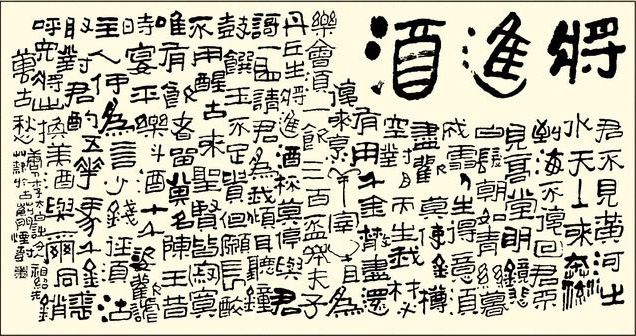 將進酒
君不見黃河之
水天上來奔流
到海不復回君不
見高堂明鏡悲
白髮朝如青絲暮
成雪人生得意須
盡歡莫使金樽
空對月天生我材必
有用千金散盡還
復來烹羊宰牛且為
樂會須一飲三百盃岑夫子
丹丘生將進酒杯莫停與君
歌一曲請君為我傾耳聽鐘
鼓饌玉不足貴但願長醉
不用醒古來聖賢皆寂寞
唯有飲者留其名陳王昔
時宴平樂斗酒十千恣歡謔
主人何為言少錢徑須沽
取對君酌五華馬千金裘
呼兒將出換美酒與爾同銷
萬古愁